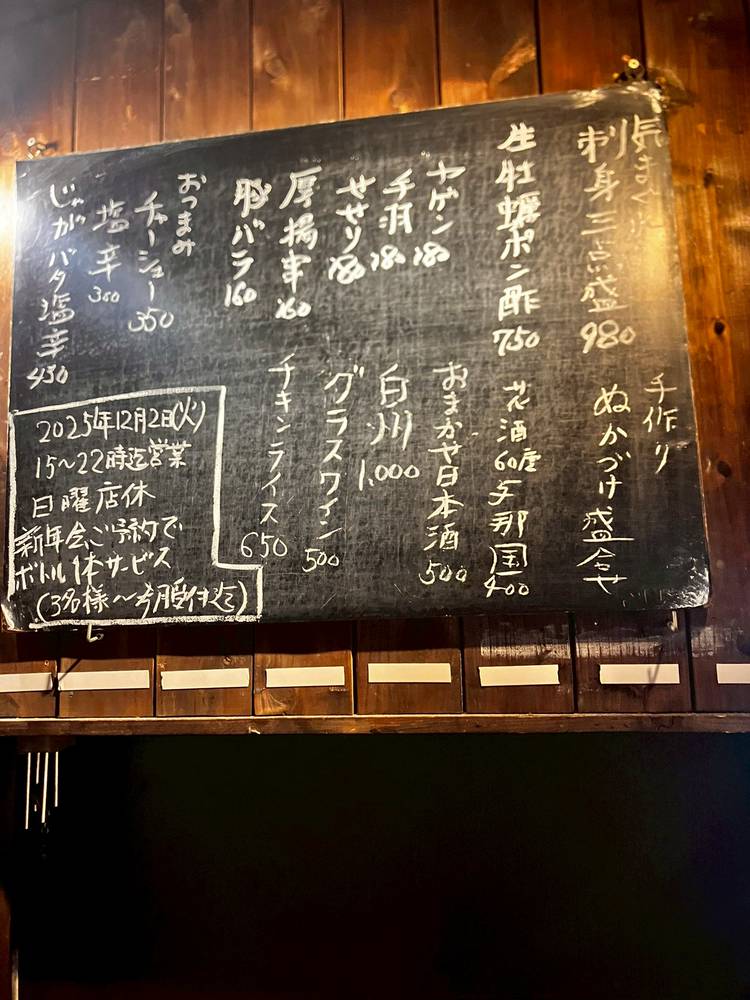 気まぐれ
刺身三点盛 980
生牡蠣ポン酢 750
ヤゲン 180
手羽 180
せせり 180
厚揚串 160
豚バラ 160
おつまみ
チャーシュー 350
塩辛 300
じゃがバタ塩辛 450
手作り
ぬかづけ盛合せ
花酒60度与那国 400
おまかせ日本酒 500
白州 1,000
グラスワイン 500
チキンライス 650
2025年12月2日(火)
15〜22時迄営業
日曜店休
新年会ご予約で
ボトル1本サービス
(3名様〜今月受付迄)